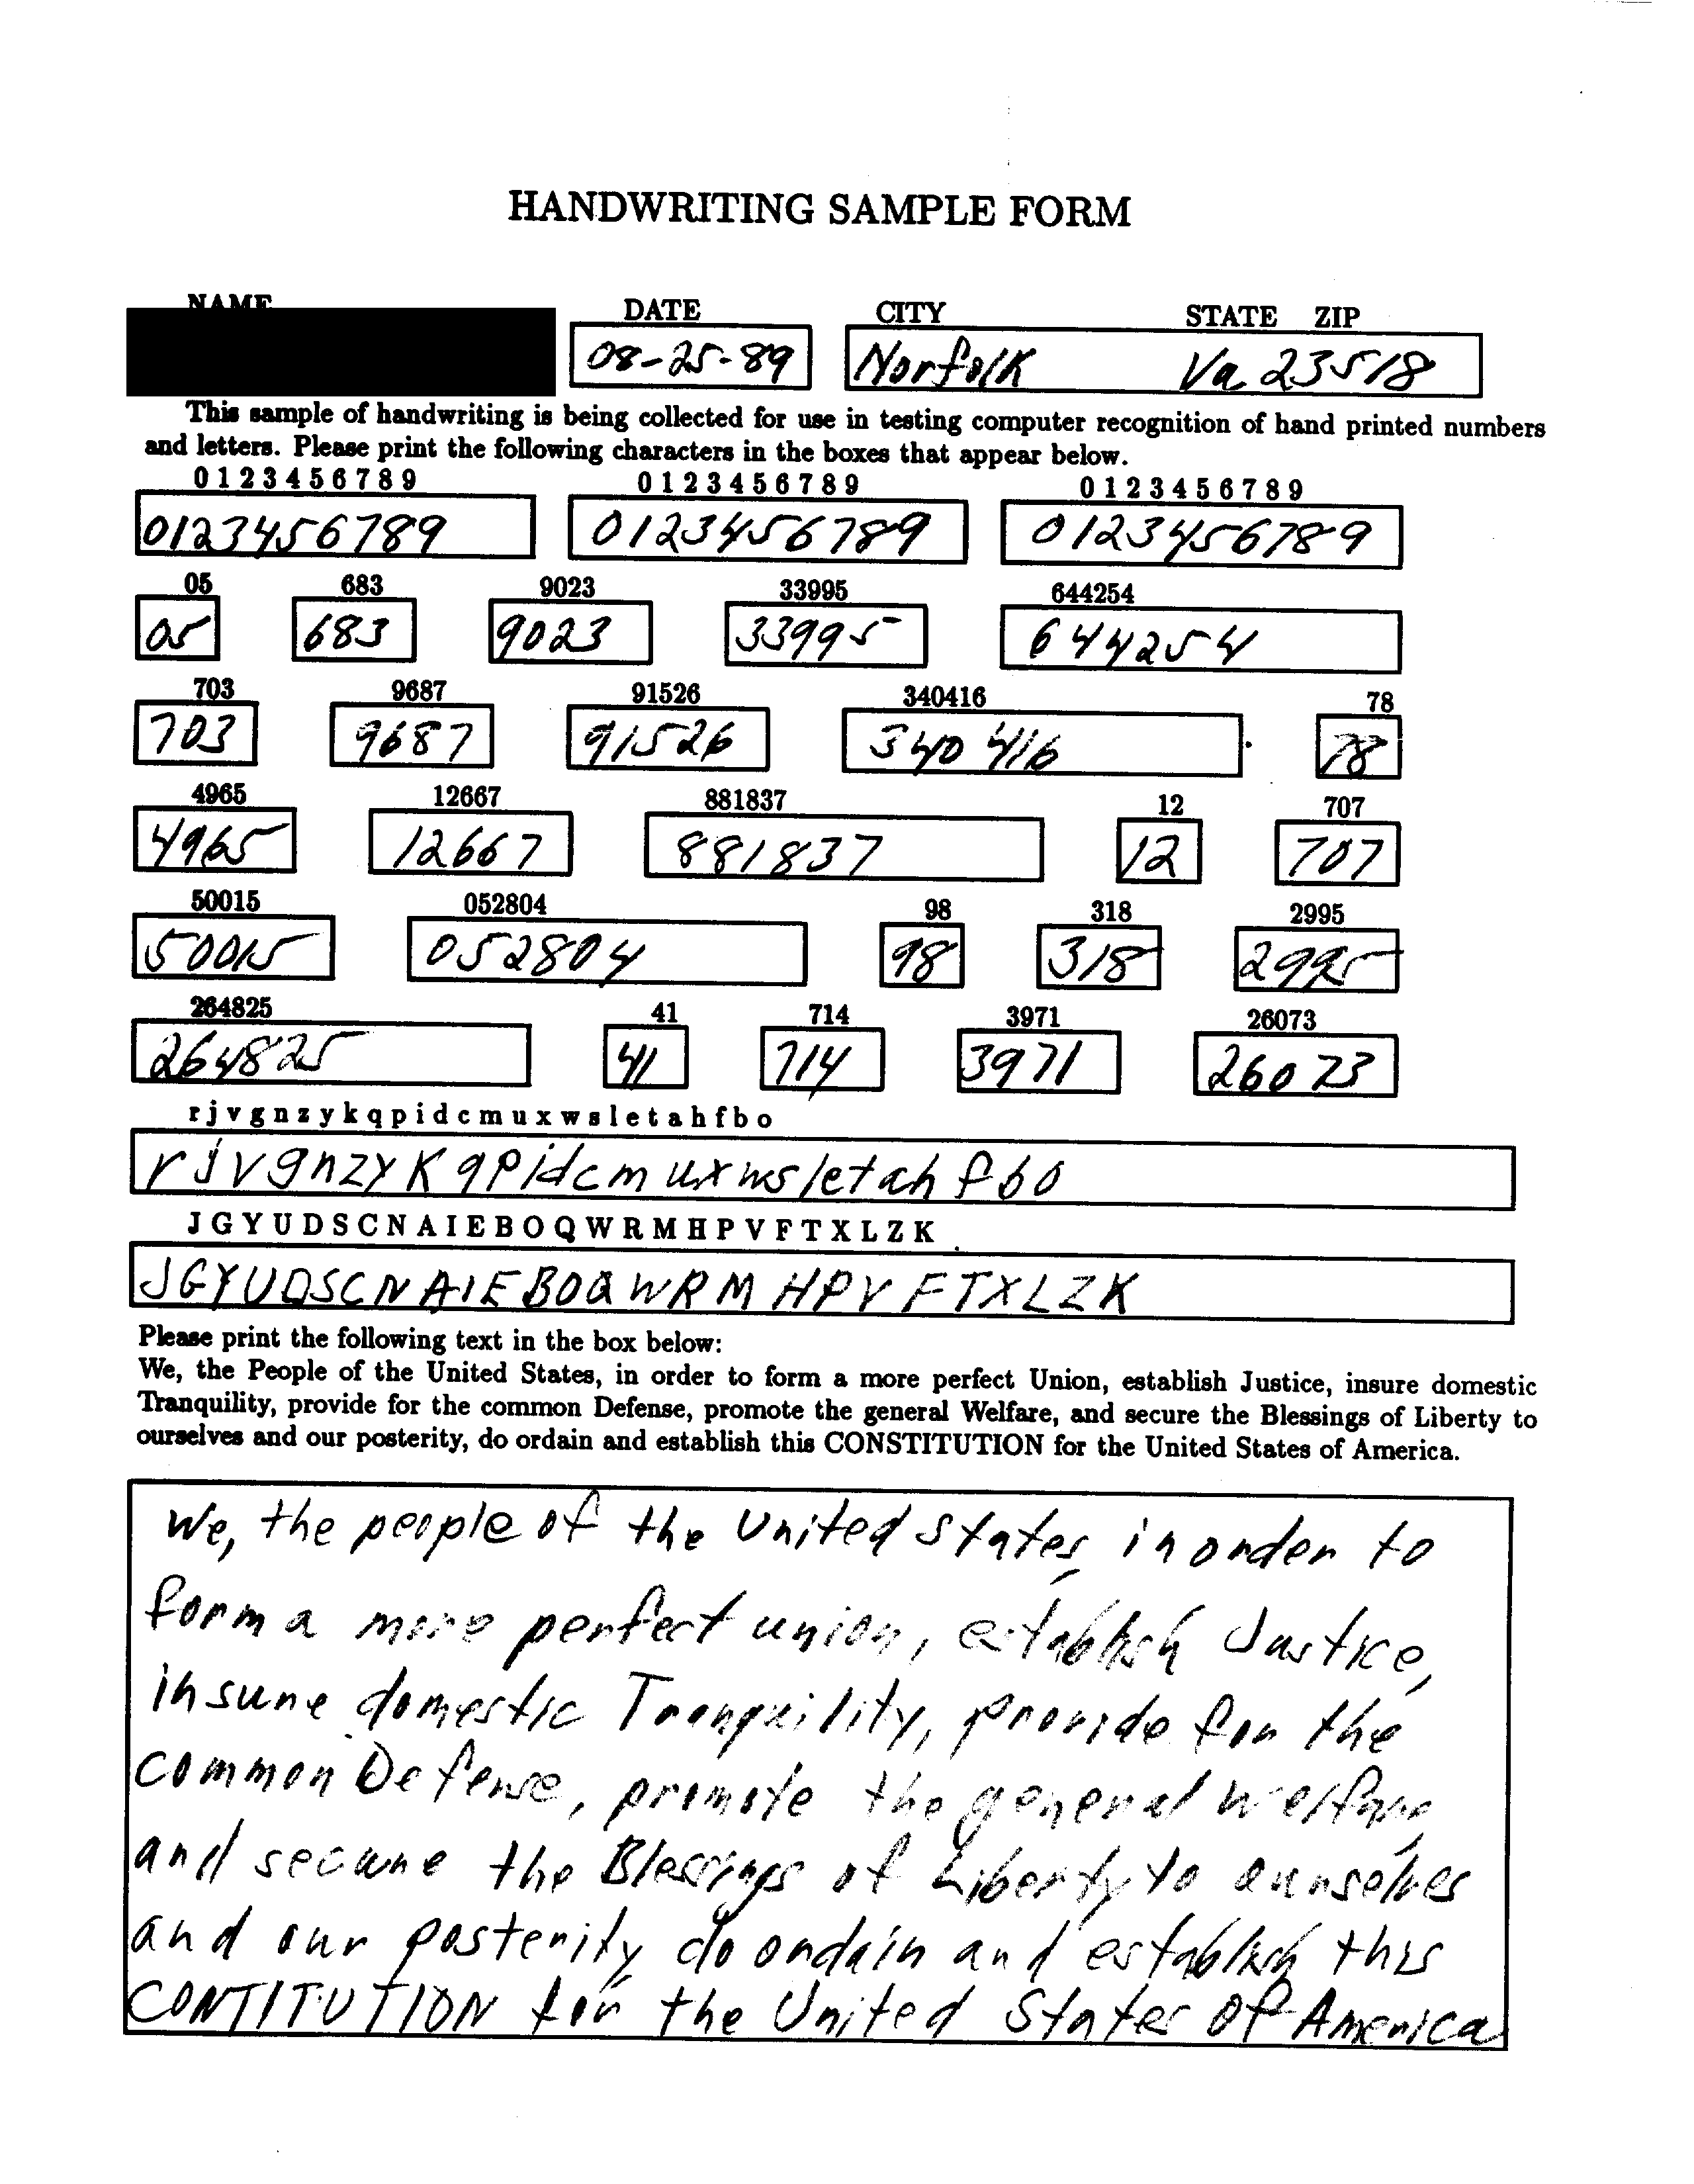 HANDWRITING SAMPLE FORM
NAME DATE CITY STATE ZIP
08-25-89 Norfolk Va 23518
This sample of handwriting is being collected for use in testing computer recognition of hand printed numbers
and letters. Please print the following characters in the boxes that appear below.
0 1 2 3 4 5 6 7 8 9 0 1 2 3 4 5 6 7 8 9 0 1 2 3 4 5 6 7 8 9
0123456789 0123456789 0123456789
05 683 9023 33995 644254
05 683 9023 33995 644254
703 9687 91526 340416 78
703 9687 91526 340416 78
4965 12667 881837 12 707
4965 12667 881837 12 707
50015 052804 98 318 2995
50015 052804 98 318 2995
264825 41 714 3971 26073
264825 41 714 3971 26073
r j v g n z y k q p i d c m u x w s l e t a h f b o
r j v g n z y K q p i d c m u x w s l e t a h f b o
J G Y U D S C N A I E B O Q W R M H P V F T X L Z K
J G Y U D S C N A I E B O Q W R M H P V F T X L Z K
Please print the following text in the box below:
We, the People of the United States, in order to form a more perfect Union, establish Justice, insure domestic
Tranquility, provide for the common Defense, promote the general Welfare, and secure the Blessings of Liberty to
ourselves and our posterity, do ordain and establish this CONSTITUTION for the United States of America.
We, the people of the United States, in order to
form a more perfect union, establish Justice,
insure domestic Tranquility, provide for the
common Defense, promote the general welfare,
and secure the Blessings of Liberty to ourselves
and our posterity do ordain and establish this
CONTITUTION for the United States of America